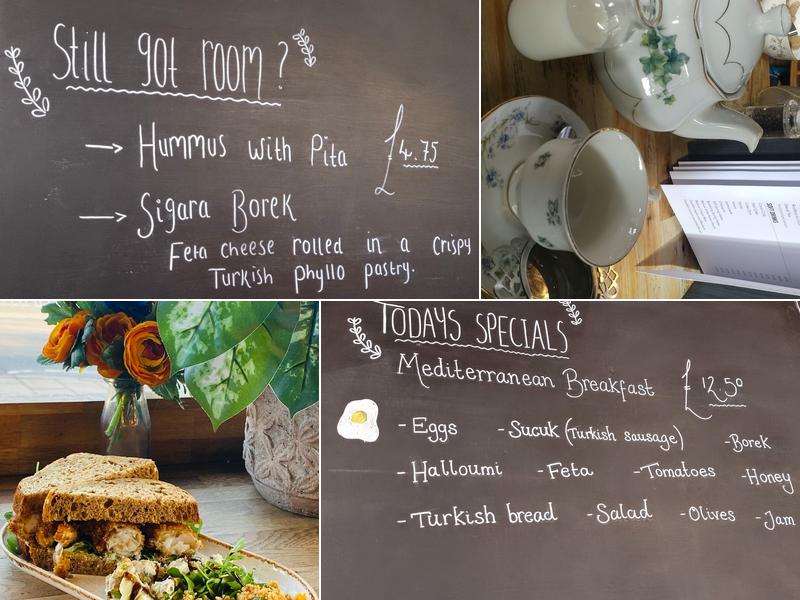 Still got room?
→ Hummus with Pita £4.75
→ Sigara Borek
Feta cheese rolled in a crispy
Turkish phyllo pastry.
TODAYS SPECIALS
Mediterranean Breakfast £12.50
- Eggs - Sucuk (Turkish sausage) - Borek
- Halloumi - Feta - Tomatoes - Honey
- Turkish bread - Salad - Olives - Jam